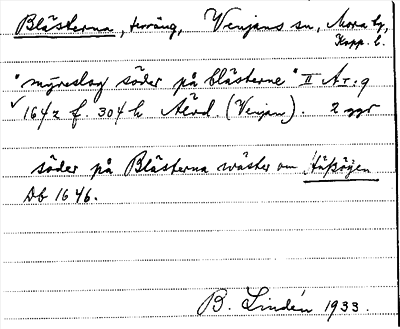 Blästerna, terräng, Venjans sn, Mora tg,
Kopp. l.
"myreslag söder på blästerne" II A I: 9
✓ 1642 f. 304 h Älvd. (Venjan). 2 ggr
söder på Blästerna wäster om
Db 1646.
B. Lindén 1933.